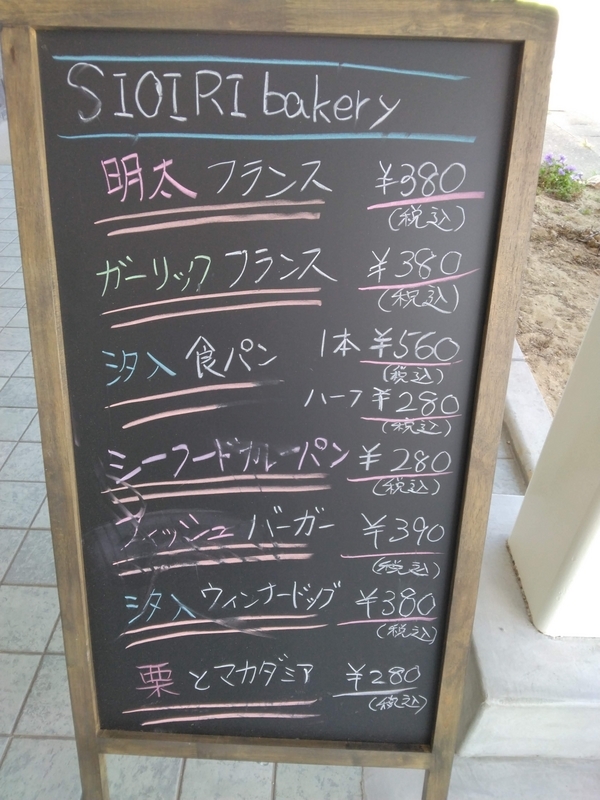 SIOIRI bakery
明太フランス ¥380
(税込)
ガーリックフランス ¥380
(税込)
汐入食パン 1本 ¥560
(税込)
ハーフ ¥280
(税込)
シーフードカレーパン ¥280
(税込)
フィッシュバーガー ¥390
(税込)
汐入ウィンナードッグ ¥380
(税込)
栗とマカダミア ¥280
(税込)